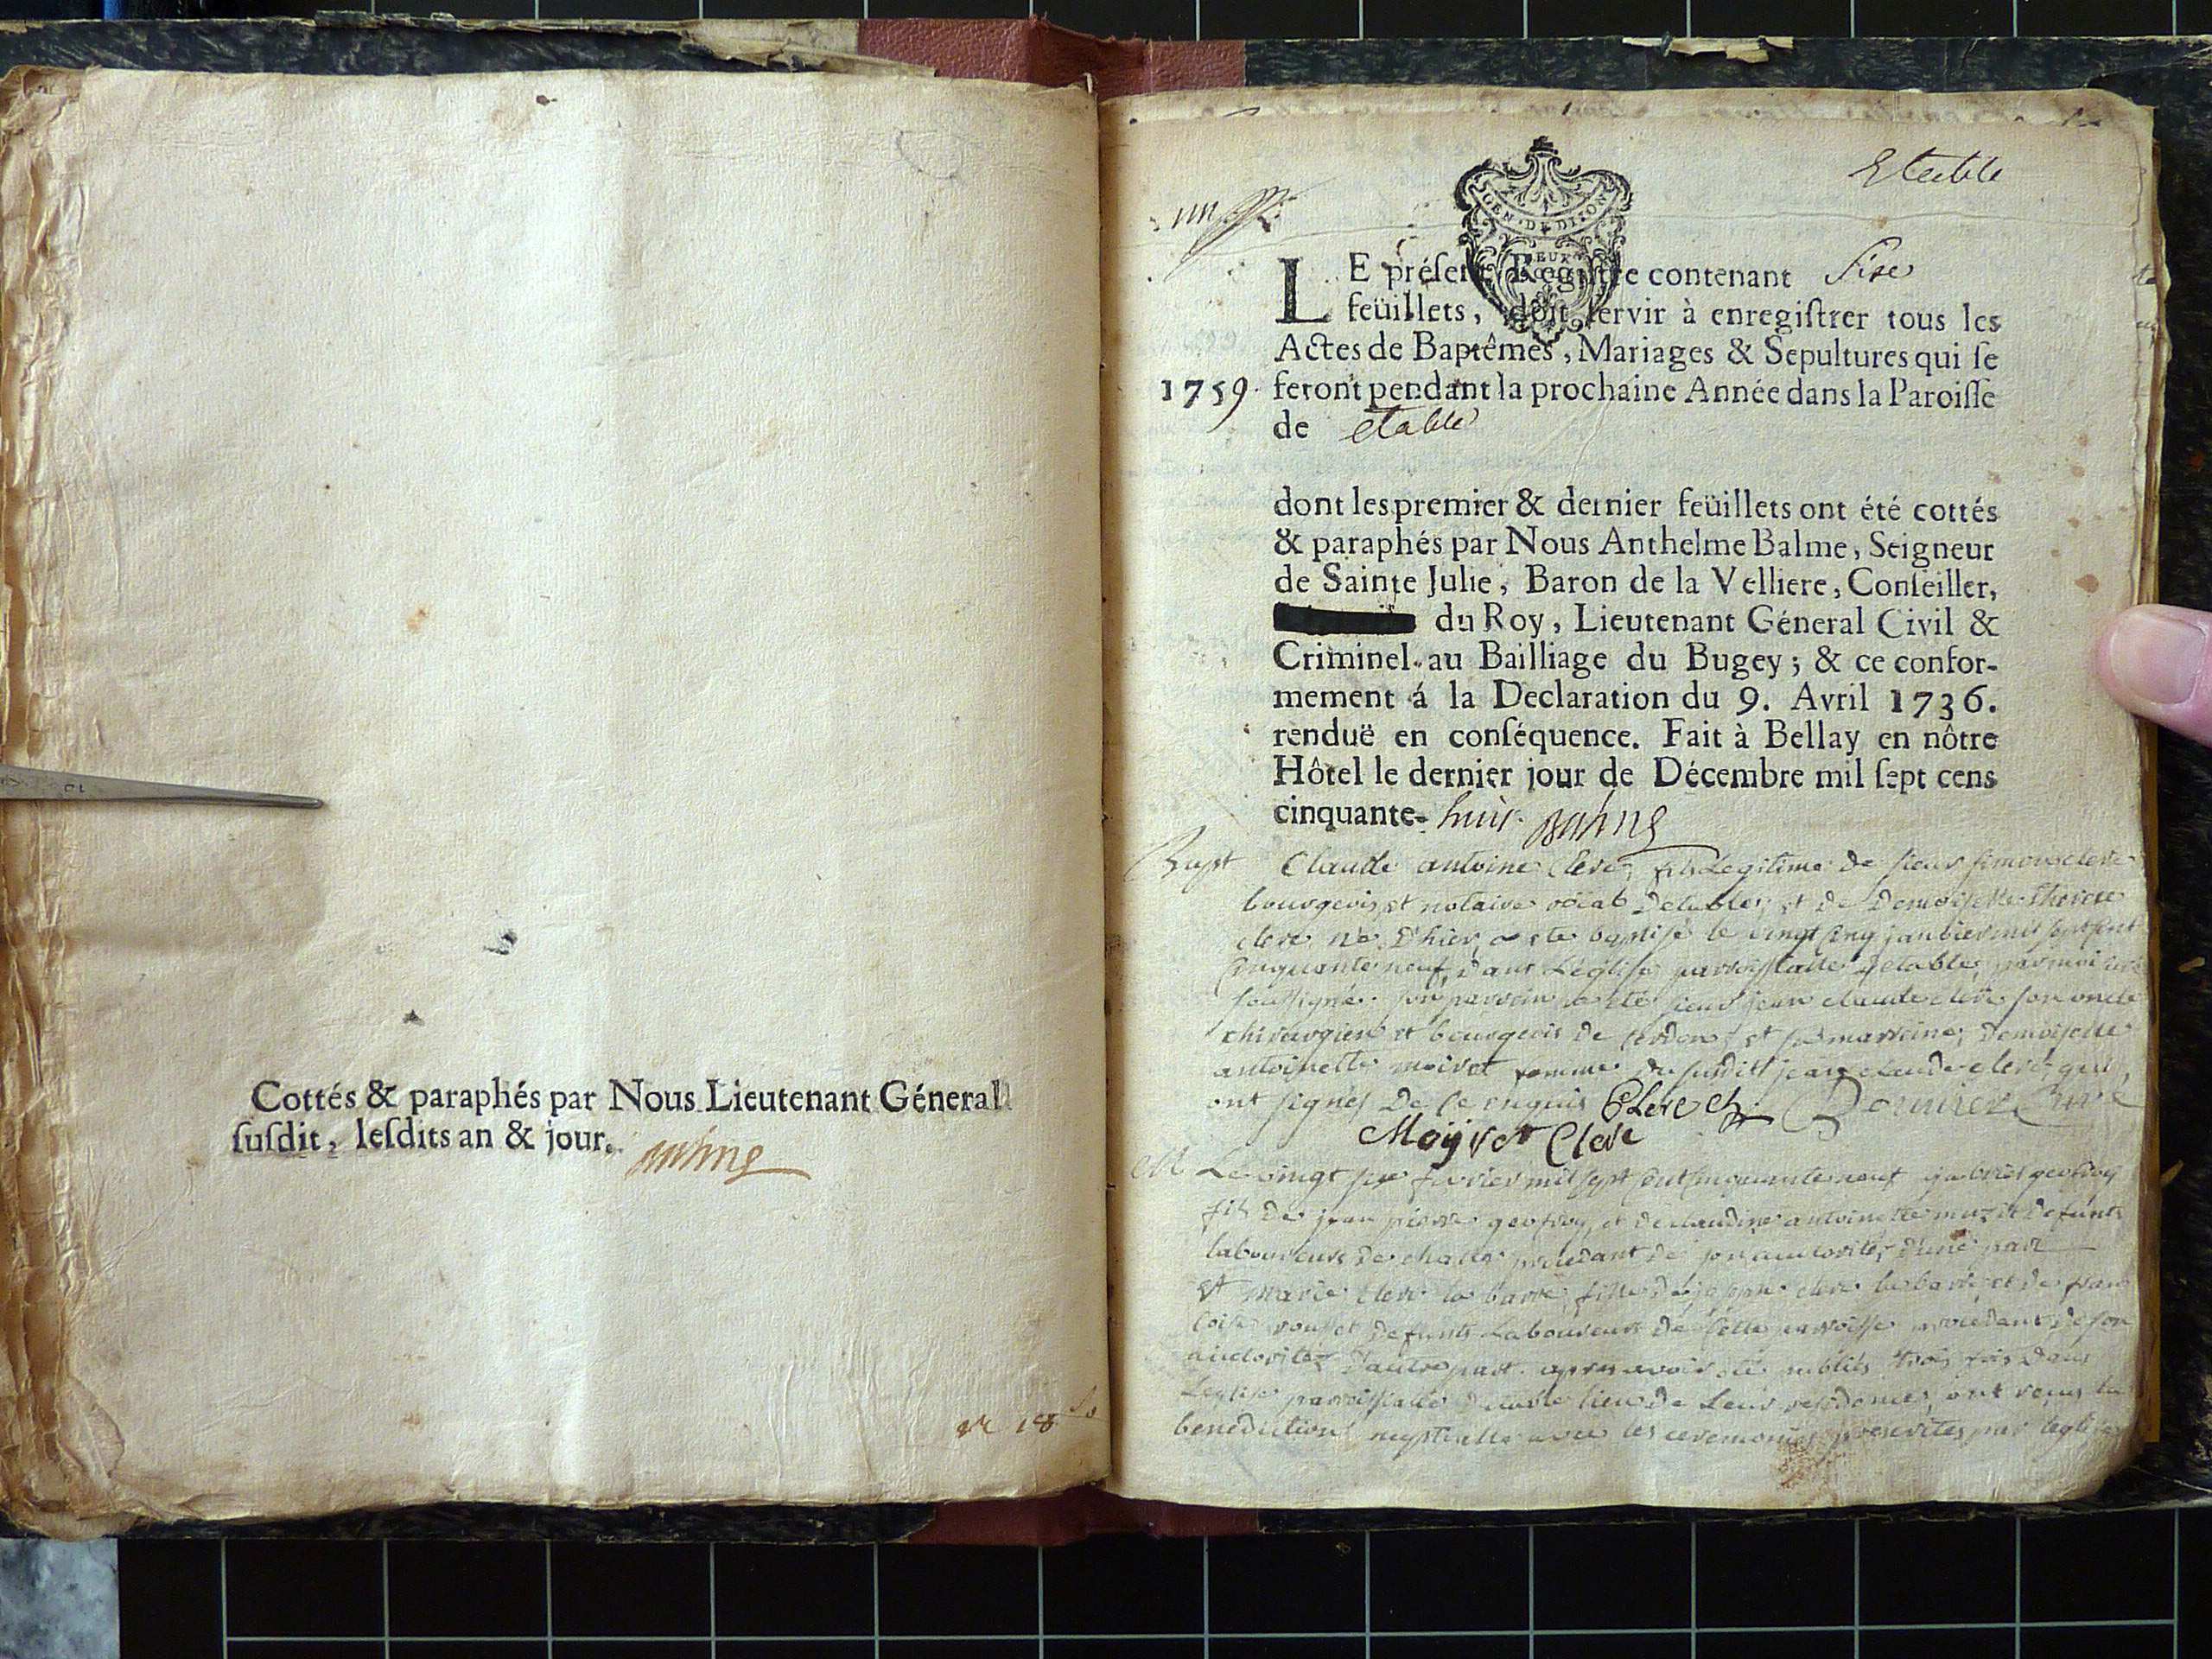 Cottés & paraphés par Nous Lieutenant Géneral
susdit, lesdits an & jour.
Balme
Etable
un
GEN · DE DIJON
LE présent Registre contenant Sise
feüillets, doit servir à enregistrer tous les
Actes de Baptêmes, Mariages & Sepultures qui se
1759. feront pendant la prochaine Année dans la Paroisse
de etable
dont les premier & dernier feüillets ont été cottés
& paraphés par Nous Anthelme Balme, Seigneur
de Sainte Julie, Baron de la Velliere, Conseiller,
du Roy, Lieutenant Géneral Civil &
Criminel au Bailliage du Bugey; & ce confor-
mement á la Declaration du 9. Avril 1736.
renduë en conséquence. Fait à Bellay en nôtre
Hôtel le dernier jour de Décembre mil sept cens
cinquante- huit. Balme
Bapt Claude antoine Clerc, fils Legitime de sieur simon clerc
bourgeois et notaire roial Detables, et de Demoiselle therese
clerc né D'hier, a ete baptisé le vingt cinq janvier mil sept cent
cinquante neuf, dans L'église parroissialle Detable, par moi curé
soussigné. son parrein a eté sieur jean claude clerc son oncle
chirurgien et bourgeois de cerdon, et sa marreine, demoiselle
antoinette moiret femme du susdit jean claude clerc, qui
ont signés De ce enquis Clerc Dornier Curé
Moyret Clerc
M Le vingt six fevrier mil sept cent cinquante neuf gabriel geofray
fils De jean pierre geofray, et de claudine antoinette defunts
laboureurs de challes procedant de son auctorité, d'une part
et marie clerc la barre, fille de joseph clerc la barre, et de fran
coise rousset defunts Laboureurs de cette parroisse procedant de son
auctorité, d'autre part. apres avoir été publiés trois fois dans
Leglise parroissialle d'etable lieu de Leur residence, ont reçus la
benediction nuptialle avec les ceremonies prescrites par leglise